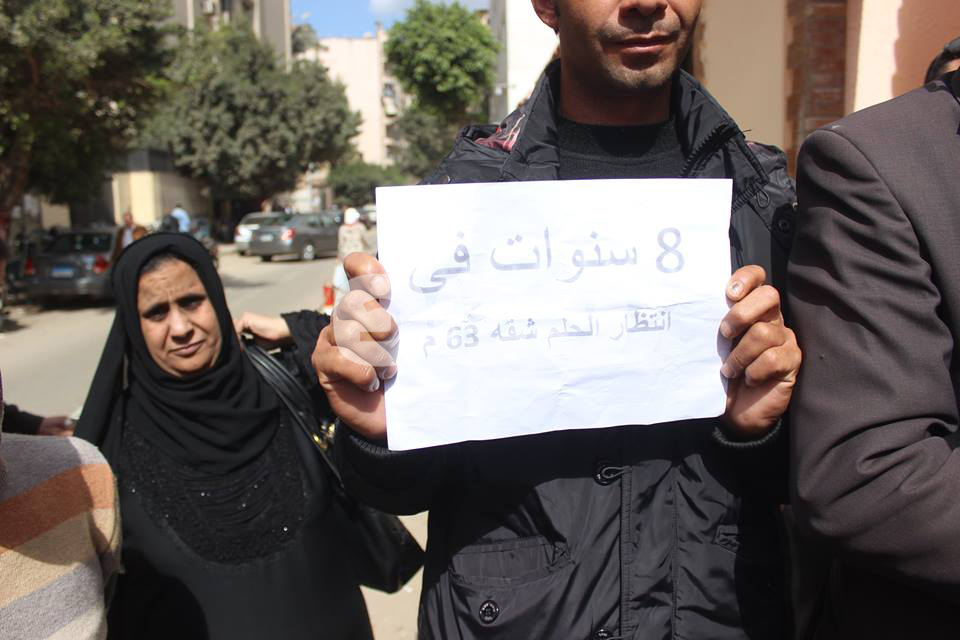 8 سنوات في
انتظار الحلم شقه 63 م